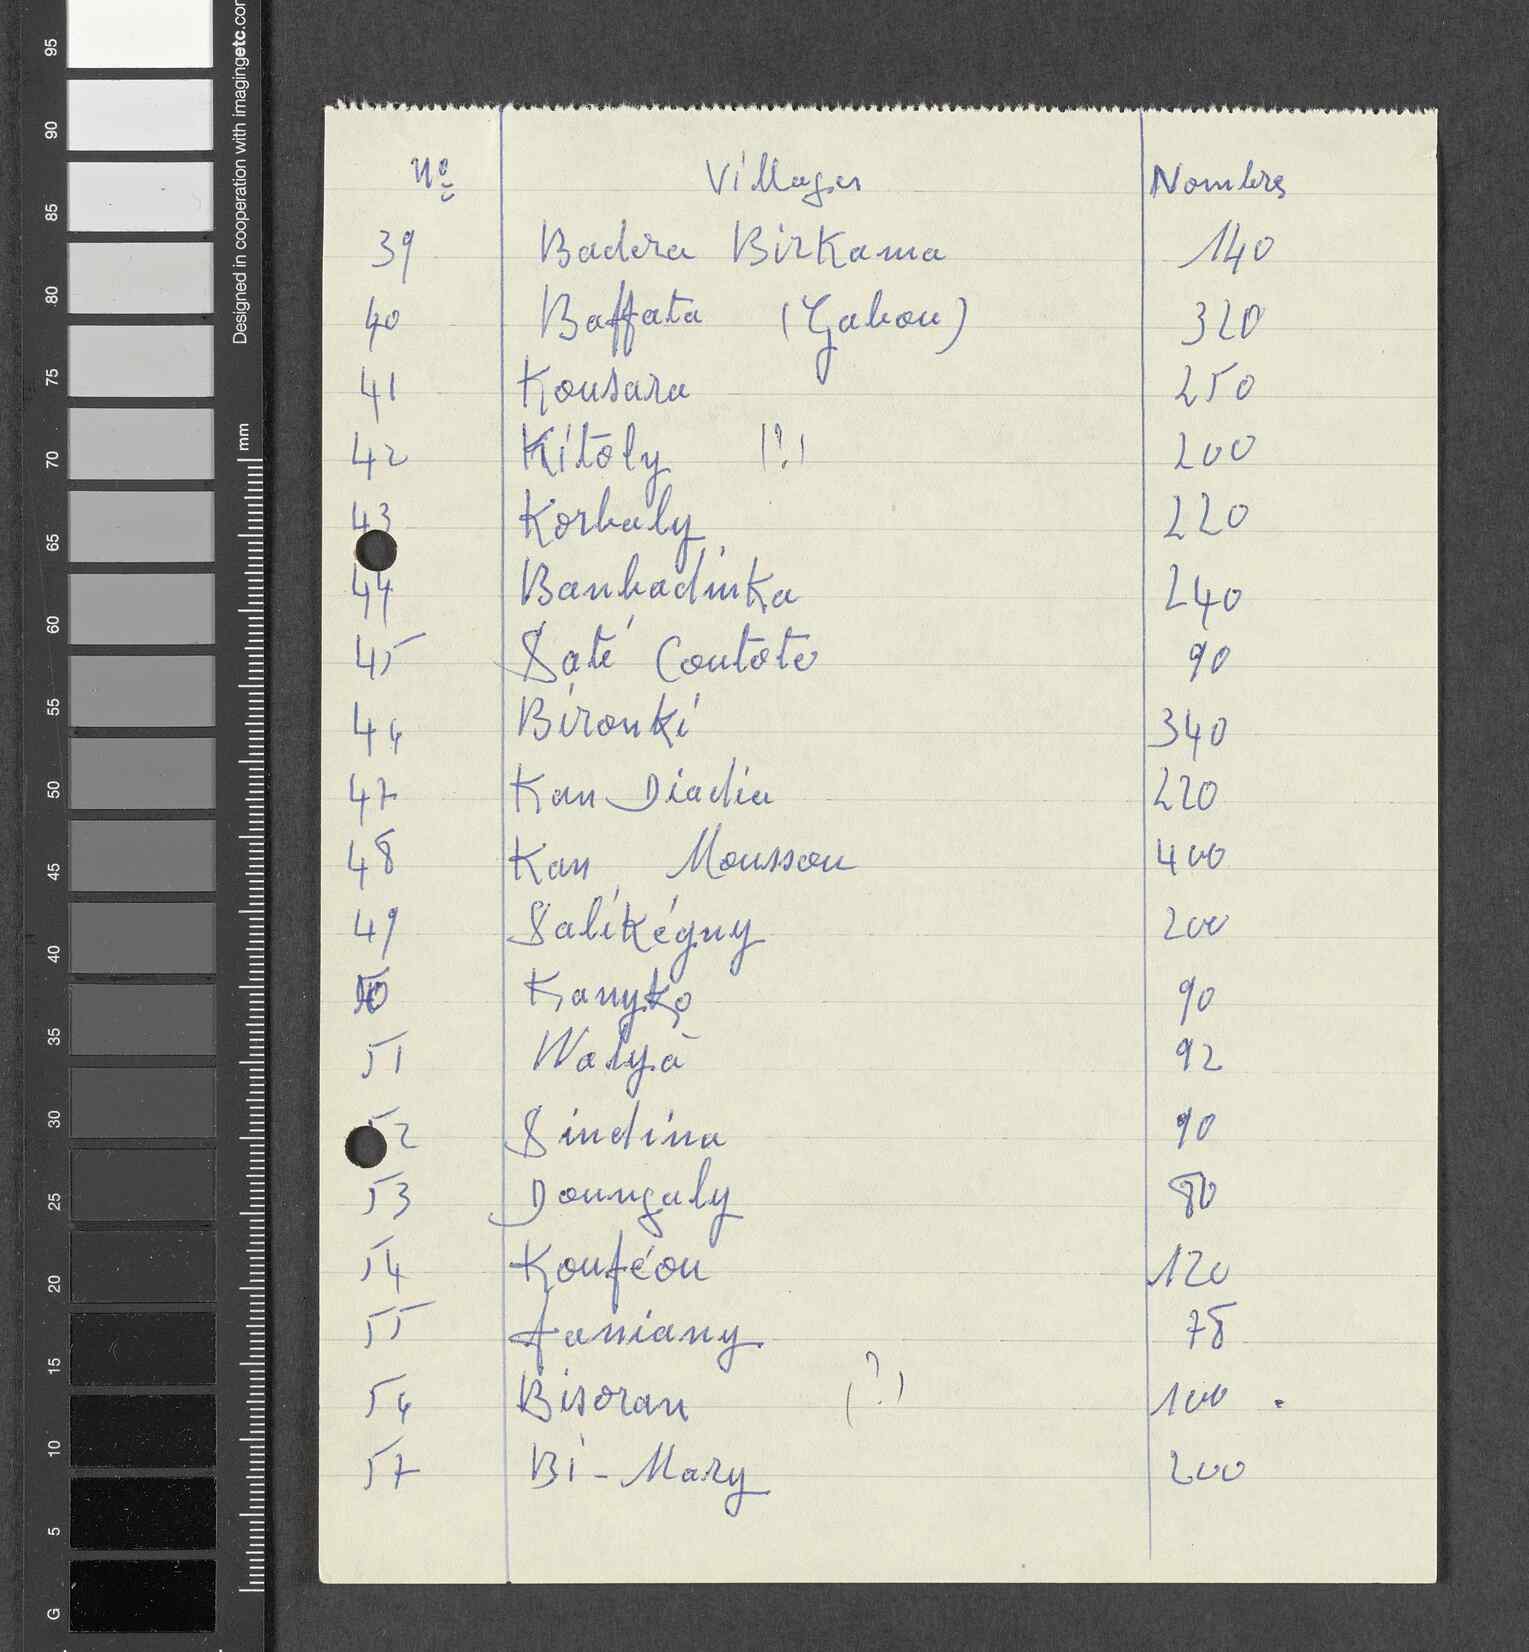 Nº Villages Nombres
39 Badora Birkama 140
40 Baffata (Gabou) 320
41 Kousara 250
42 Kitoly (?) 200
43 Korbaly 220
44 Banbadinka 240
45 Saté Coutoto 90
46 Bironki 340
47 Kan Diadia 220
48 Kan Moussou 400
49 Salikégny 200
50 Kanyko 90
51 Walyà 92
52 Sindina 90
53 Doungaly 80
54 Kouféou 120
55 faniany 78
56 Bisoran (?) 100.
57 Bi-Mary 200
Designed in cooperation with imagingetc.com
mm
95
90
85
80
75
70
65
60
55
50
45
40
35
30
25
20
15
10
5
G